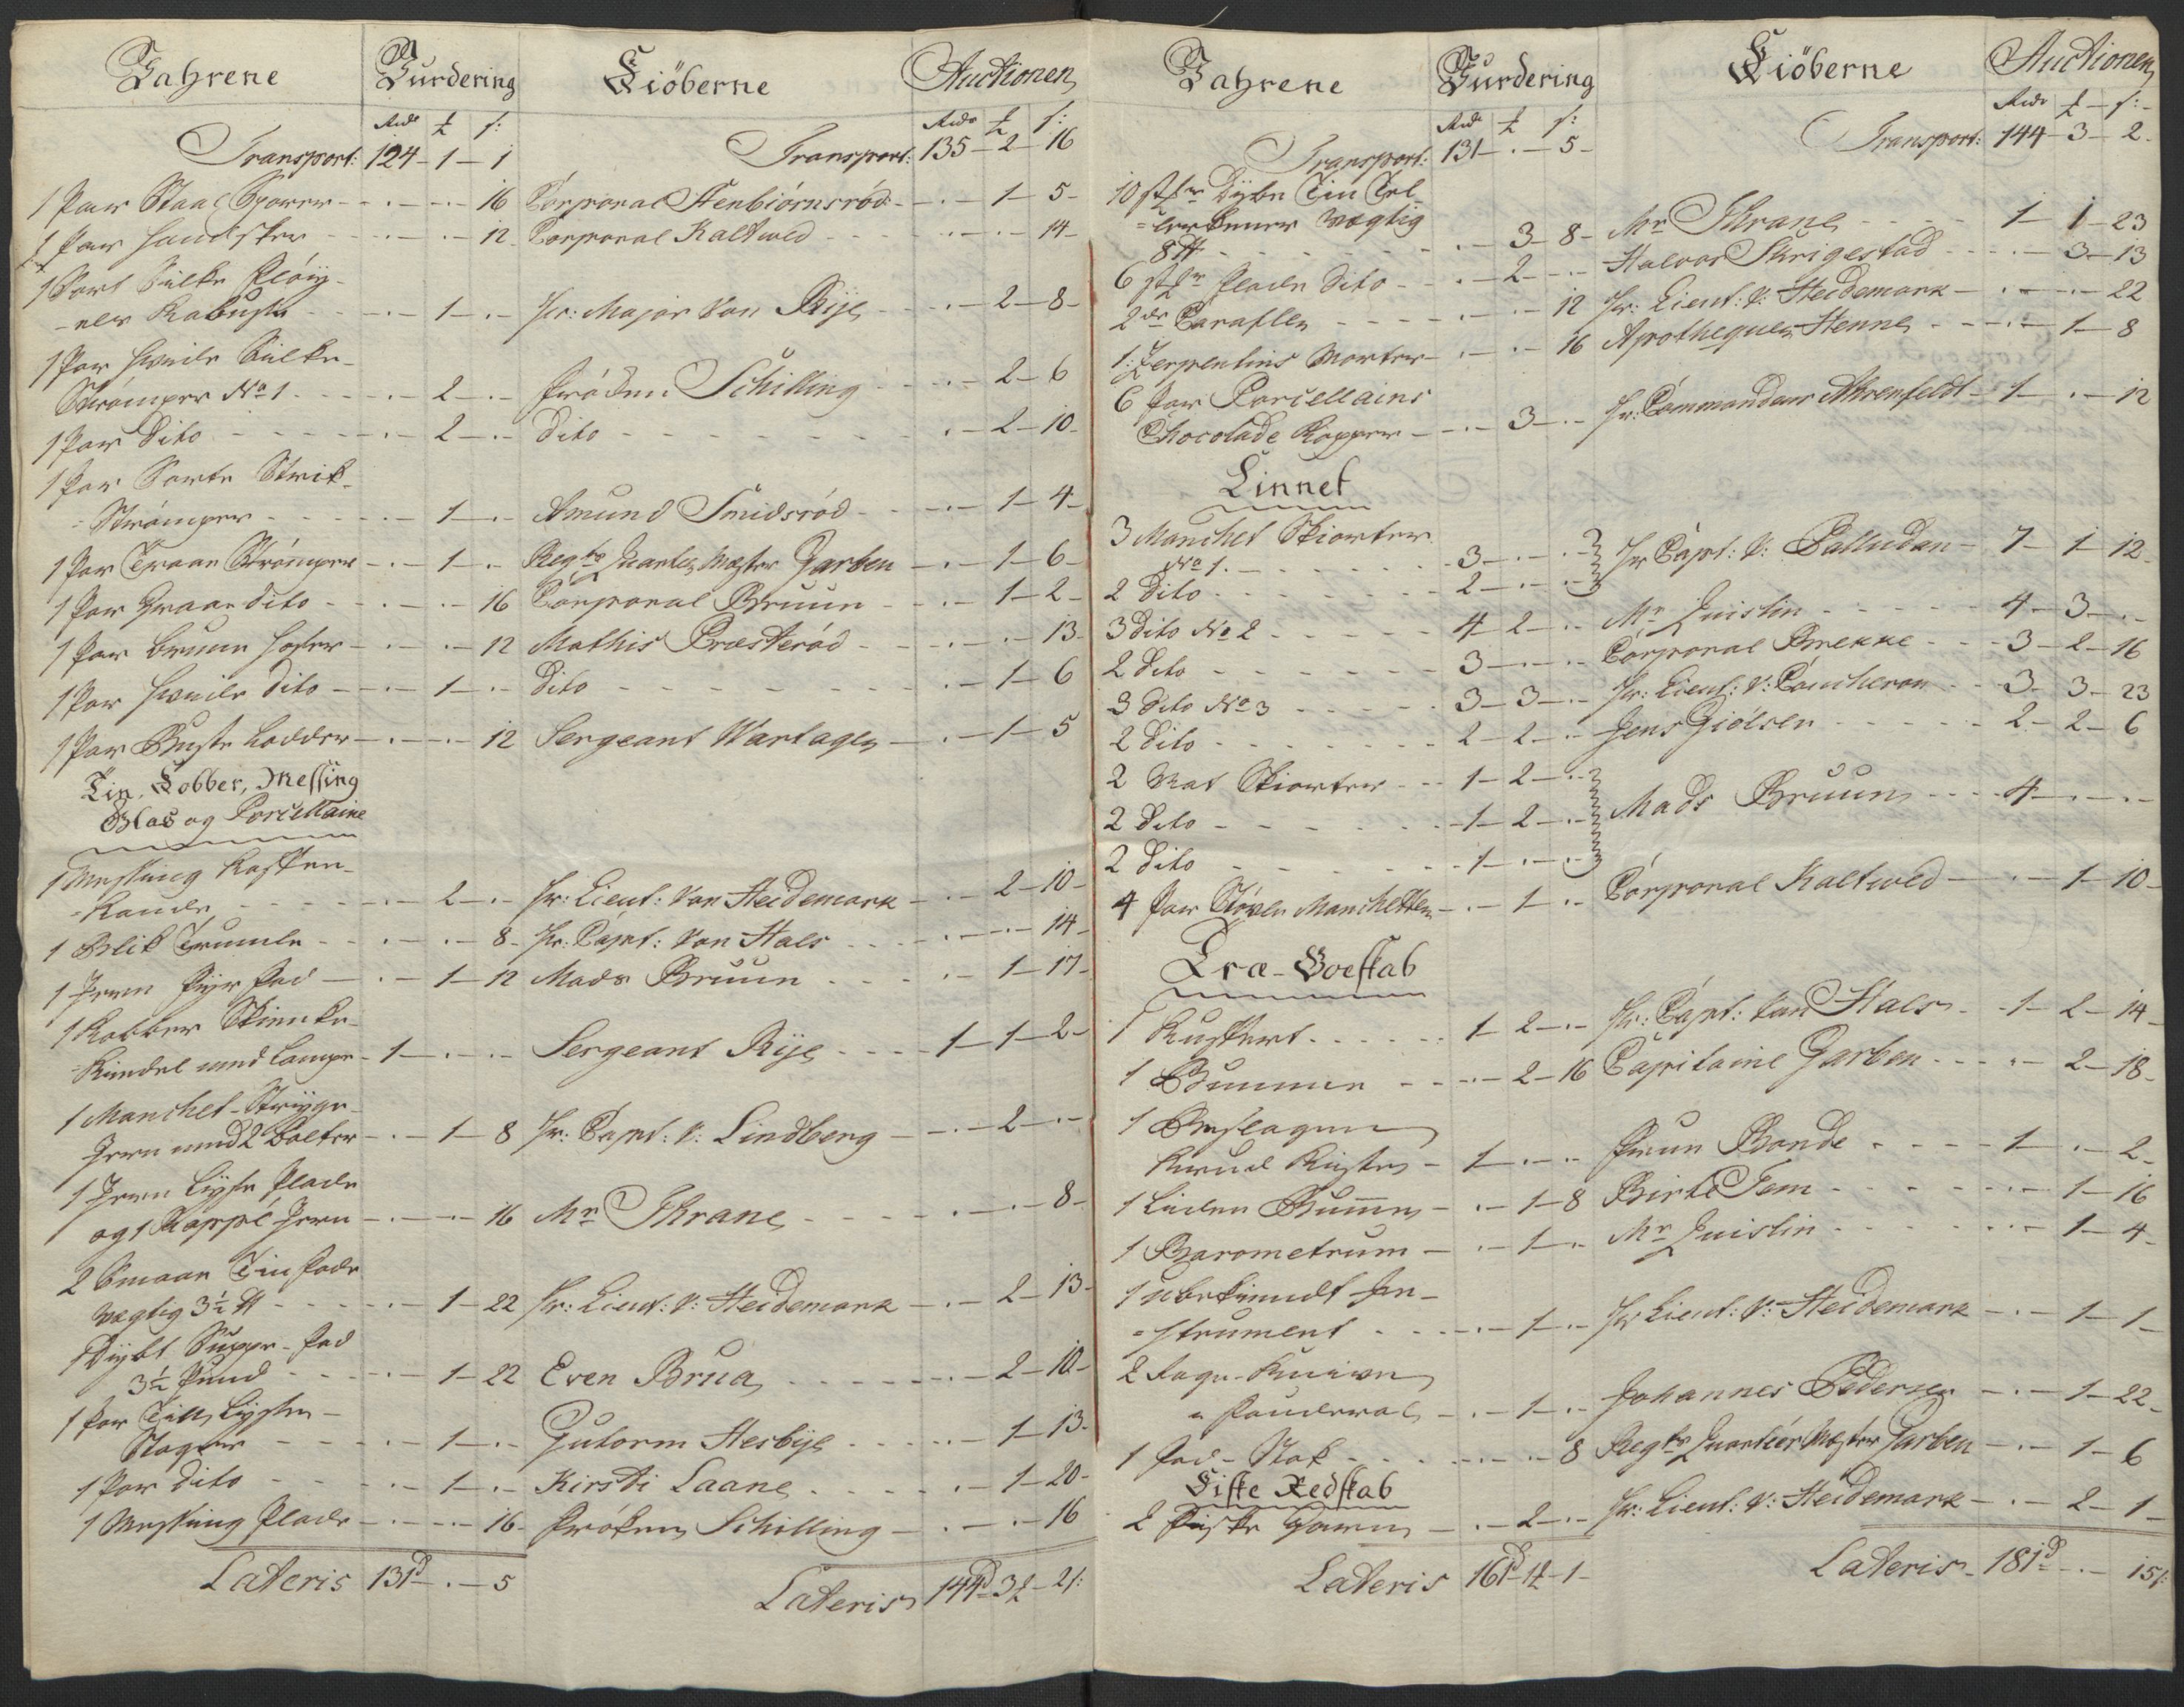 Vahrene Vurdering Kiöberne Auctionen
Rdr ƶ s: Rdr ƶ s:
Transport: 124 - 1 - 1 Transport: 135 - 2 - 16
1 Par Staal Sporer - . - . - 16 Corporal Stenbiörnsröd - . - 1 - 5 -
1 Par Handsker - . - . - 12 Corporal Kaltvled - . - . - 14 -
1 Sort Silke Fløy-
-els Kabuds - . - 1 - . - Hr: Major Von Rije - . - 2 - 8 -
1 Par Hvide Silke-
Strömper No 1 - . - 2 - . - Fröken Schilling - . - 2 - 6
1 Par Dito - . - 2 - . - Dito - . - 2 - 10 -
1 Par Sorte Strik-
= Strömper - . - 1 - . - Amund Smidsröd - . - 1 - 4 -
1 Par Traan Strömper - . - 1 - . - Regts Quarteer Mester Garben - . - 1 - 6 -
1 Par Graae dito - . - . - 16 Corporal Bruun - . - 1 - 2 -
1 Par brune Hoser - . - . - 12 Mathis Præsteröd - . - . - 13 -
1 Par Hvide Dito - . - 1 - . - Dito - . - 1 - 6
1 Par Buste Lodder - . - . - 12 Sergeant Wartager - . - 1 - 5
Tin, Kobber, Messing
Glas og Porcellaine
1 Messing Kaffee-
= Kande - . - 2 - . - Hr: Lieut: Von Heidemark - . - 2 - 10 -
1 Blik Tromle - . - . - 8 - Hr: Capt: Von Hals - . - . - 14 -
1 Jern Fyr Fad - . - 1 - 12 Mads Bruun - . - 1 - 17 -
1 Kobber Skienke-
-Kiedel med Lampe - 1 - . - . - Sergeant Rije - 1 - 1 - 2 -
1 Manchet-Stryge-
Jern med 2 Bolter - . - 1 - 8 Hr: Capt: V: Lindberg - . - 2 - . -
1 Jern Lyse Plade
og 1 Kappe Jern - . - . - 16 Mr Thrane - . - . - 8 -
2 Smaae Tin Fade
vægtig 3½ ℔ - . - 1 - 22 Hr: Lieut: V: Heidemark - . - 2 - 13 -
1 Dybt Suppe-Fad
3½ Pund - . - 1 - 22 Even Brua - . - 2 - 10 -
1 Par Tin Lyse-
Stager - . - 1 - . - Gutorm Hesbye - . - 1 - 13 -
1 Par Dito - . - 1 - . - Kirsti Laane - . - 1 - 20 -
1 Messing Plade - . - . - 16 - Fröken Schilling - . - . - 16
Lateris 131d - . - 5 Lateris 144d - 3ƶ - 2s:
Vahrene Vurdering Kiöberne Auctionen
Rdr ƶ s: Rdr ƶ s:
Transport: 131 - . - 5 - Transport: 144 - 3 - 2 -
10 st: Dybe Tin Tal-
=lerkener Vægtig
8 ℔ - . - 3 - 8 - Mr Thrane - 1 - 1 - 23
6 st: flade Dito - . - 2 - . - Halvor Skrigestad - . - 3 - 13
2de Carafler - . - . - 12 Hr: Lieut: V: Heidemark - . - . - 22
1 Serpentins Morter - . - . - 16 Apothequer Henne - . - 1 - 8
6 Par Porcellains
Chocolade Kopper - . - 3 - . - Hr: Commandeur Ahrenfeldt - 1 - . - 12
Linnet
3 Manchet Skiorter
No 1. - 3 - . - . - Hr Capt: V: Palludan - 7 - 1 - 12 -
2 Dito - 2 - . - . -
3 Dito No 2 - 4 - 2 - . - Mr Quistin - 4 - 3 - . -
2 Dito - 3 - . - . - Corporal Brekke - 3 - 2 - 16
3 Dito No 3 - 3 - 3 - . - Hr: Lieut: V: Coucheron - 3 - 3 - 23
2 Dito - 2 - 2 - . - Jens Giölsen - 2 - 2 - 6
2 Nat Skiorter - 1 - 2 - . -
2 Dito - 1 - 2 - . - Mads Bruun - 4 - . - . -
2 Dito - 1 - . - . -
4 Par Støvle Manchetter - . - 1 - . - Corporal Kaltvled - . - 1 - 10 -
Træ-Boeskab
1 Kuffert - 1 - 2 - . - Hr: Capt: Von Hals - 1 - 2 - 14 -
1 Bumme - . - 2 - 16 Capitaine Garben - . - 2 - 18 -
1 Beslagen
Kruds Kiste - 1 - . - . - Embret Bonde - 1 - . - 2 -
1 Liden Bumme - . - 1 - 8 Birte Tem - . - 1 - 16
1 Barometrum - . - 1 - . - Mr Quistin - . - 1 - 4 -
1 ubekiendt In-
=strument - . - 1 - . - Hr Lieut: V: Heidemark - . - 1 - 1 -
2 Tage-Knive
i Fouderal - . - 1 - . - Johannes Pedersen - . - 1 - 22 -
1 Fad-Stok - . - . - 8 Regts Quarteer Mester Garben - . - 1 - 6
Fiske Redskab
2 Fiske Garn - . - 2 - . - Hr: Lieut: V: Heidemark - . - 2 - 1 -
Lateris 161d - 1ƶ - 1 - Lateris 181d - . - 15s: